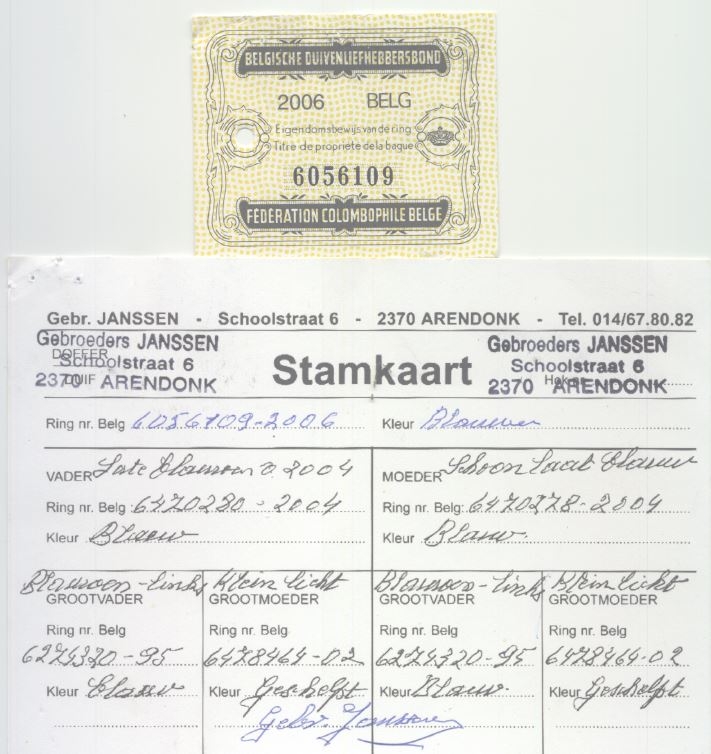 BELGISCHE DUIVENLIEFHEBBERSBOND
2006 BELG
Eigendomsbewijs van de ring
Titre de propriete de la bague
6056109
FÉDÉRATION COLOMBOPHILE BELGE
Gebr. JANSSEN - Schoolstraat 6 - 2370 ARENDONK - Tel. 014/67.80.82
Gebroeders JANSSEN
DOFFER
Schoolstraat 6
DUIF
2370 ARENDONK
Stamkaart
Gebroeders JANSSEN
Schoolstraat 6
2370 ARENDONK
Ring nr. Belg 6056109-2006 Kleur Blauwen
VADER Late Blauwen 2004
Ring nr. Belg 6470280-2004
Kleur Blauw
MOEDER Schoon Laat Blauw
Ring nr. Belg: 6470278-2004
Kleur Blauw
Blauwen-links
GROOTVADER
Ring nr. Belg
6274320-95
Kleur Blauw
Klein licht
GROOTMOEDER
Ring nr. Belg
6478464-02
Kleur Geschelpt
Blauwen-links
GROOTVADER
Ring nr. Belg
6274320-95
Kleur Blauw
Klein licht
GROOTMOEDER
Ring nr. Belg
6478464-02
Kleur Geschelpt
Gebr. Janssen